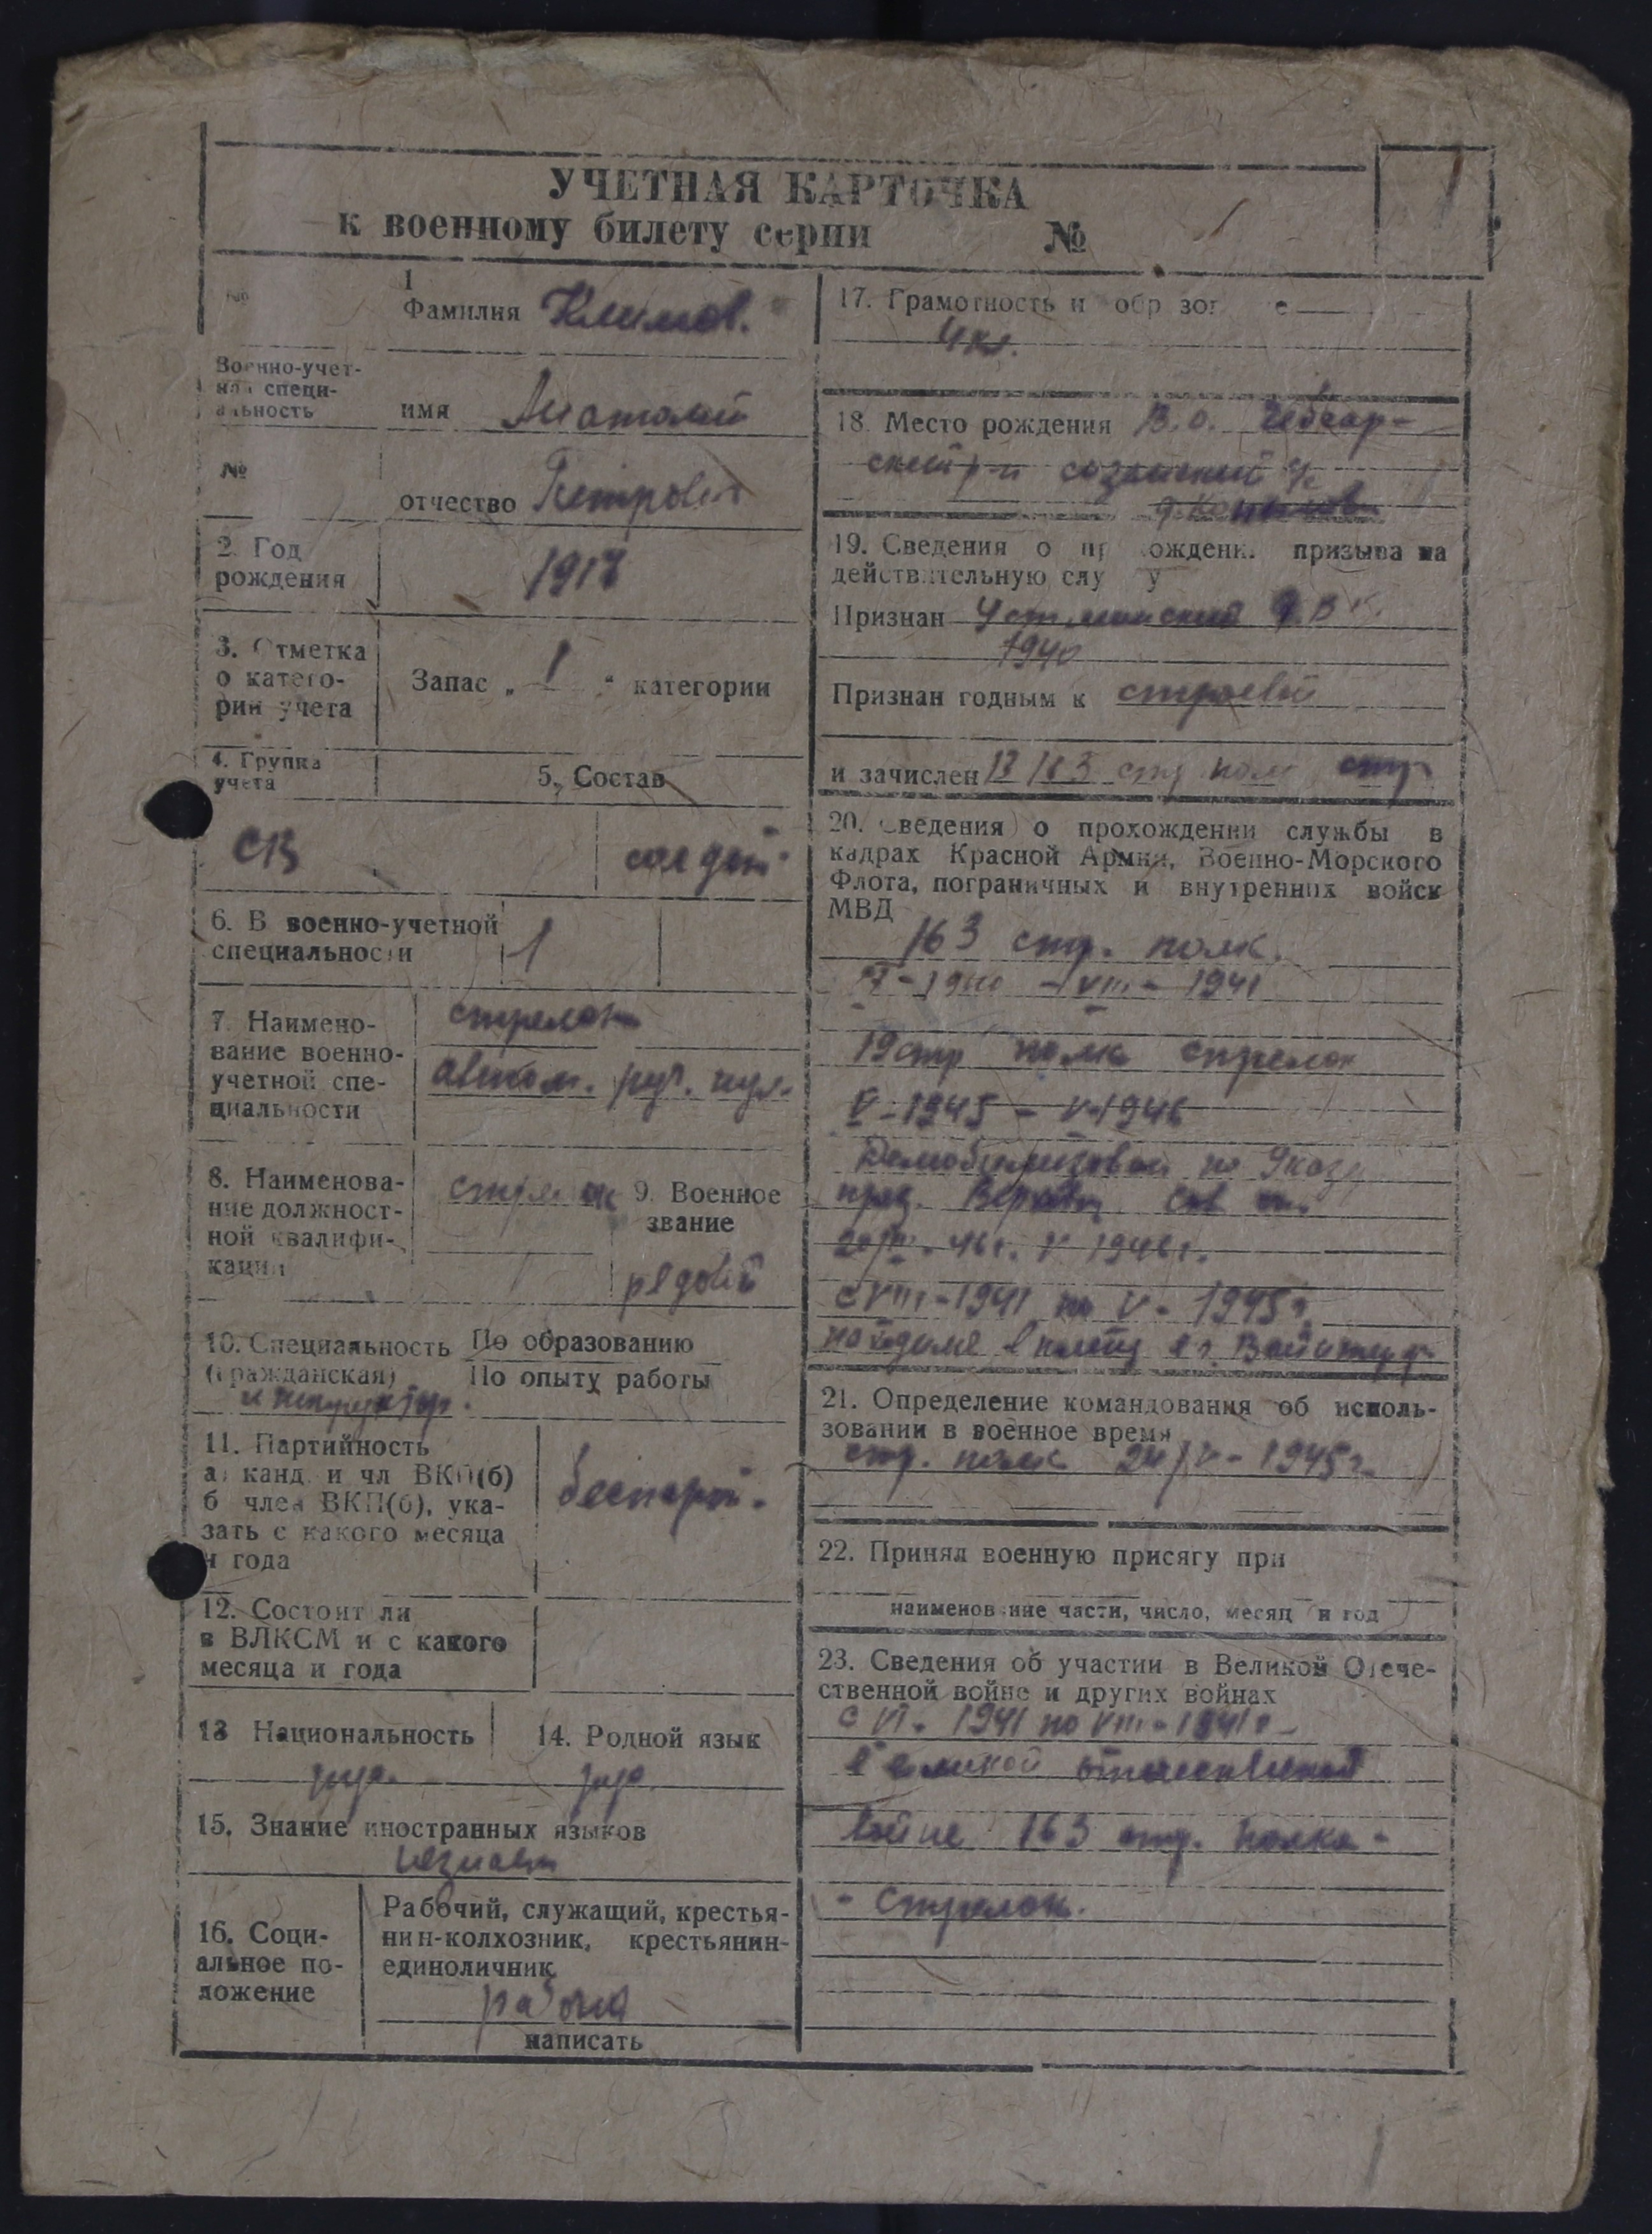 УЧЕТНАЯ КАРТОЧКА
к военному билету серии №
1
Фамилия Климов.
Военно-учет-
ная специ-
альность
имя Анатолий
№
отчество Петрович
2. Год
рождения
1917
3. Отметка
о катего-
рии учета
Запас „ 1 " категории
4. Группа
учета
5. Состав
СВ
солдат
6. В военно-учетной
специальности
1
7. Наимено-
вание военно-
учетной спе-
циальности
стрелок
автом. руч. пул.
8. Наименова-
ние должност-
ной квалифи-
кации
стрелок
9. Военное
звание
рядовой
10. Специальность По образованию
(гражданская) По опыту работы
11. Партийность
а) канд. и чл ВКП(б)
б член ВКП(б), ука-
зать с какого месяца
и года
беспарт.
12. Состоит ли
в ВЛКСМ и с какого
месяца и года
13 Национальность
14. Родной язык
рус.
рус.
15. Знание иностранных языков
незнает
16. Соци-
альное по-
ложение
Рабочий, служащий, крестья-
нин-колхозник, крестьянин-
единоличник
рабочий
написать
17. Грамотность и образование
4 кл.
18. Место рождения В.О. Чебсар-
ский р-н
19. Сведения о прохождении призыва на
действительную службу
Признан Р.В.К.
1940
Признан годным к строевой
и зачислен В 163 стр полк стр
20. Сведения о прохождении службы в
кадрах Красной Армии, Военно-Морского
Флота, пограничных и внутренних войск
МВД
163 стр. полк.
1940 - VIII - 1941
19 стр полк стрелок
V - 1945 - V-1946
Демобилизован по Указу
през. Верховн. Сов от
20/III. 46 г. V 1946 г.
с VIII - 1941 по V - 1945 г.
находился в плену в г.
21. Определение командования об исполь-
зовании в военное время
стр. полк 24/V - 1945 г.
22. Принял военную присягу при
наименование части, число, месяц и год
23. Сведения об участии в Великой Отече-
ственной войне и других войнах
с VI - 1941 по VIII - 1941 г
в великой отечественной
войне 163 стр. полка -
- стрелок.